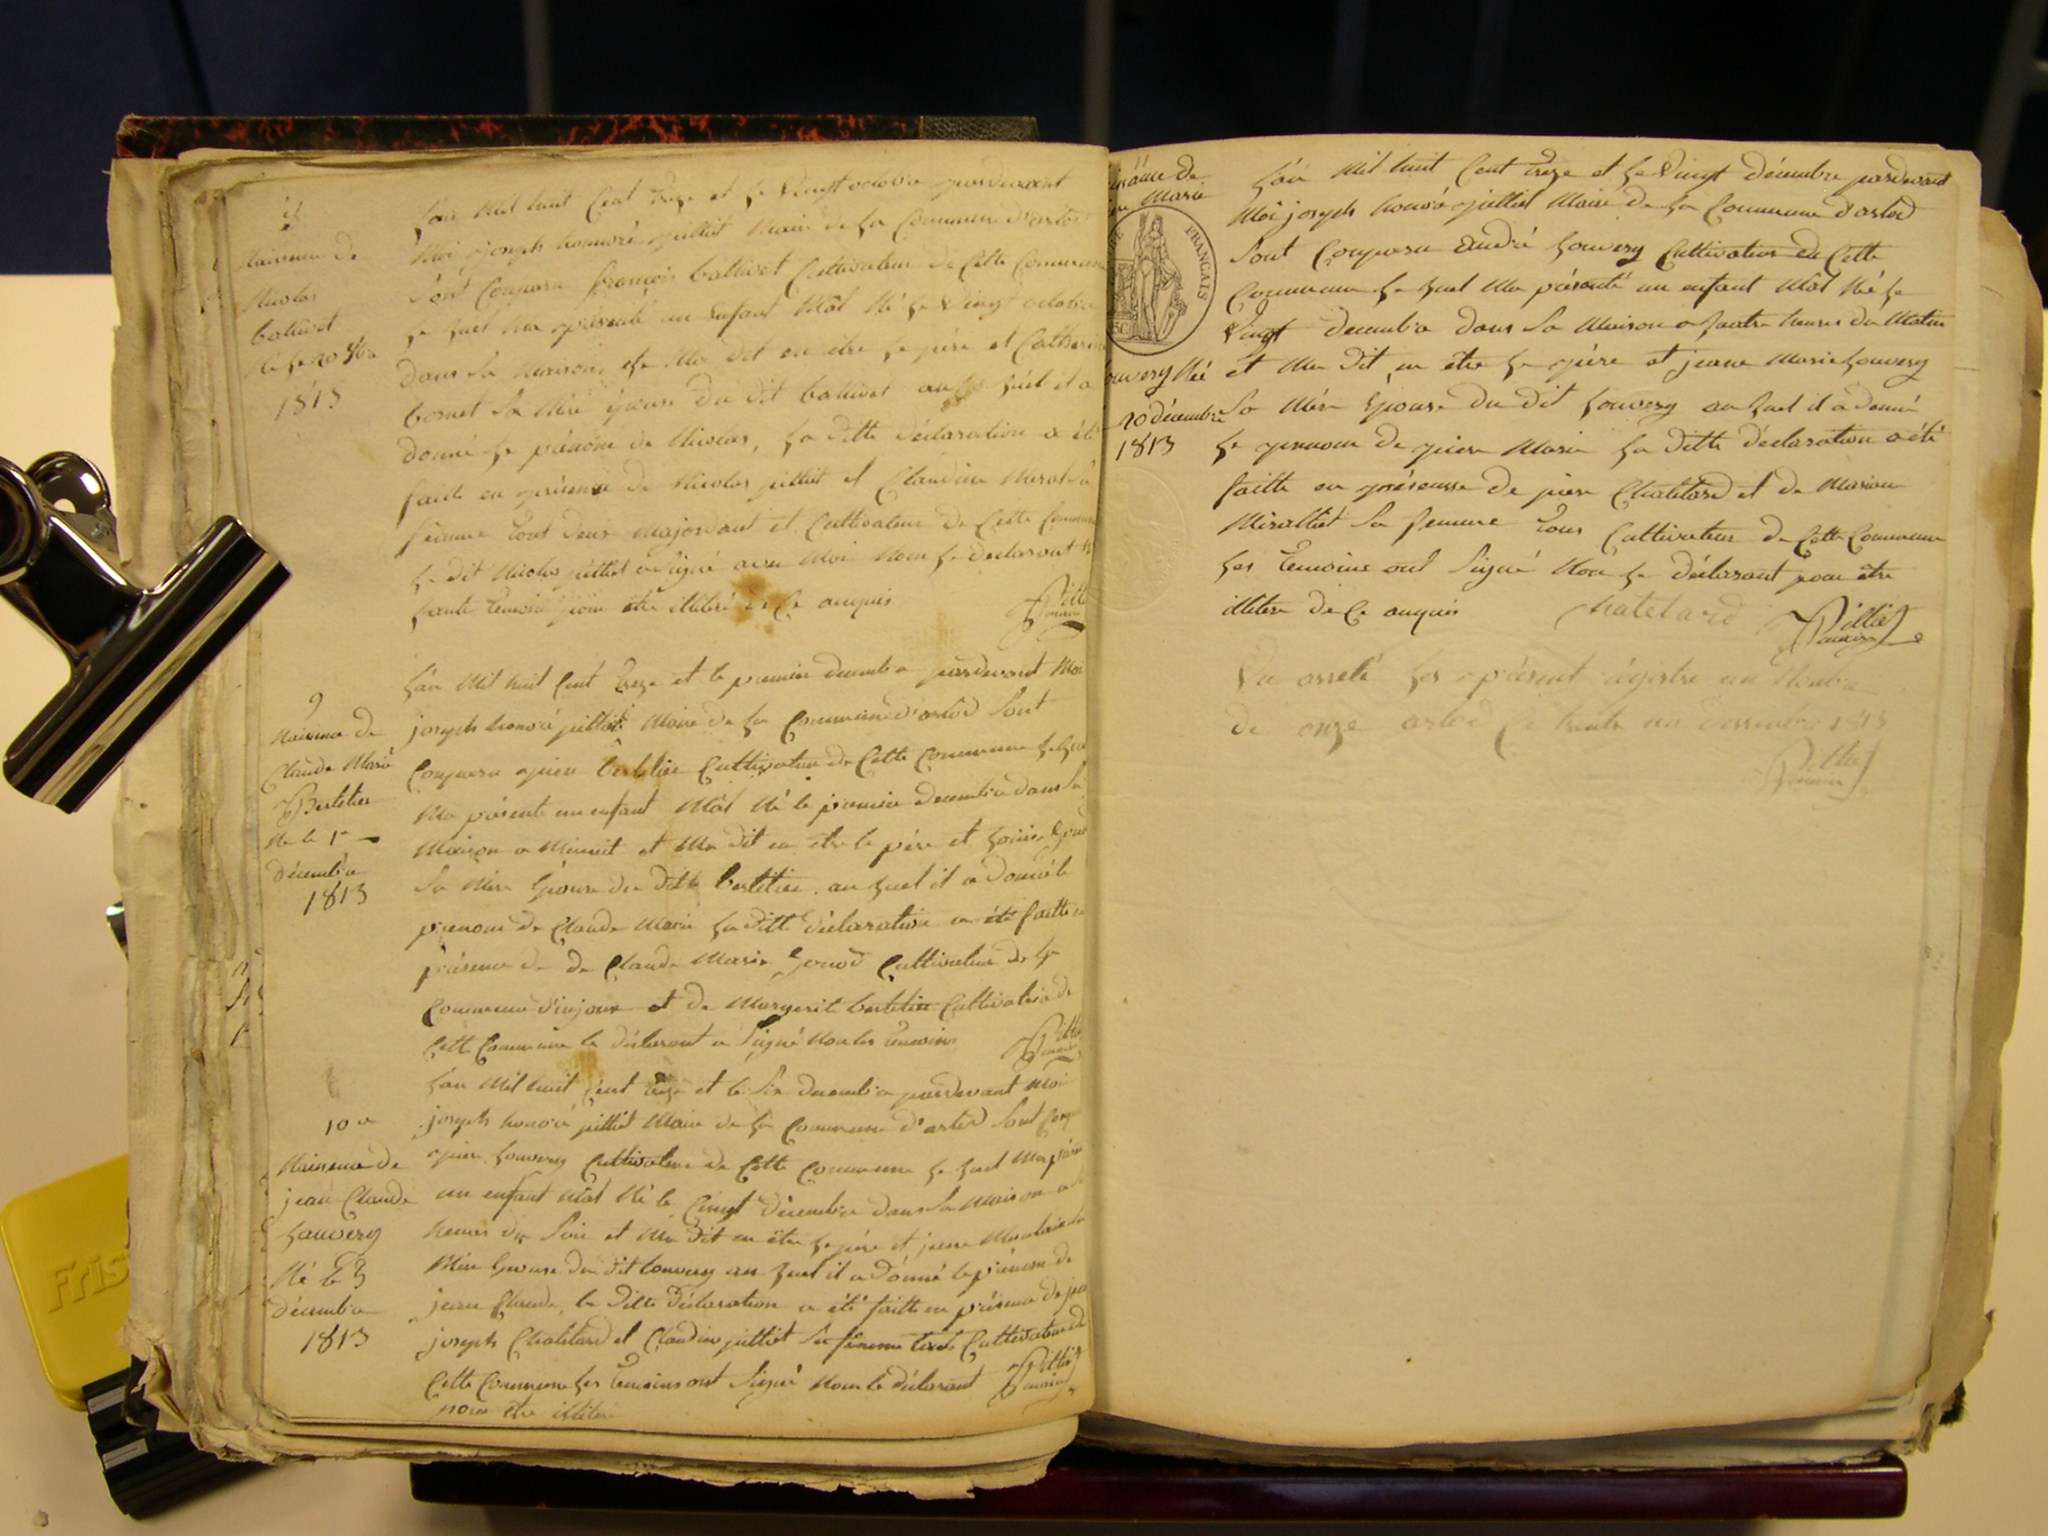 Naissance de
Nicolas
ballivet
Né le 20 8bre
1813
L'an mil huit Cent treze et le Vingt octobre pardevant
Moi joseph honnoré pilliet Maire de la Commune d'arlod
sont Comparu françois ballivet Cultivateur de Cette Commune
le quel ma présenté un enfant Mâl Né le Vingt octobre
dans sa maison, et Ma dit en être le père et Catherine
bornet sa Mère épouse du dit ballivet au quel il a
donné le prénom de Nicolas, la ditte déclaration a été
faite en présence de Nicolas pilliet et Claudine
femme tout deux Majordant et Cultivateur de Cette Commune
le dit Nicolas pilliet a signé avec Moi Non le declarant
témoin pour être illiteré de Ce enquis
9
Naissance de
Claude Marie
Bertetier
Né le 1er
décembre
1813
L'an Mil huit Cent treze et le premier decembre pardevant Moi
joseph honoré pilliet Maire de la Commune d'arlod Sont
Comparu piere bertetier Cultivateur de Cette Commune le quel
Ma présenté un enfant Mâl Né le premier decembre dans sa
Maison a Minuit et Ma dit en etre le père et Louise
sa Mère épouse du dit bertetier au quel il a donné le
prenom de Claude Marie la ditte déclaration a été faitte en
présence de de Claude Marie gonod Cultivateur de la
Commune d'injoux et de Margerit bertetier Cultivatrice de
Cette Commune le déclarant a signé Non les temoins
10e
Naissance de
jean Claude
Louvery
Né le 5
décembre
1813
L'an Mil huit Cent treze et le six decembre pardevant Moi
joseph honoré pilliet Maire de la Commune d'arlod Sont
piere Louvery Cultivateur de Cette Commune le quel Ma
un enfant Mâl Né le Cinq décembre dans sa Maison a
heures du soir et Ma dit en être le père et
Mère épouse du dit Louvery au quel il a donné le prénom de
jean Claude, la ditte déclaration a été faitte en présence de
joseph Chatelard et Claudine pilliet sa femme tous Cultivateur de
Cette Commune les témoins ont signé Non le déclarant
pour être illiteré
Marie
FRANÇAIS
Louvery Né
20 décembre
1813
L'an Mil huit Cent treze et le Vingt décembre pardevant
Moi joseph honoré pilliet Maire de la Commune d'arlod
sont Comparu André Louvery Cultivateur de Cette
Commune le quel Ma présenté un enfant Mâl Né le
Vingt decembre dans sa Maison a quatre heures du Matin
et Ma dit en être le père et jeane Marie Louvery
sa Mère épouse du dit Louvery au quel il a donné
le prenom de piere Marie la ditte déclaration a été
faitte en présensse de piere Chatelard et de Marianne
sa femme tous Cultivateur de Cette Commune
les témoins ont signé Non le déclarant pour être
illitere de Ce enquis
Chatelard
arreté le présent régistre au Nombre
de onze arlod Ce trente un decembre 1813
Pilliet